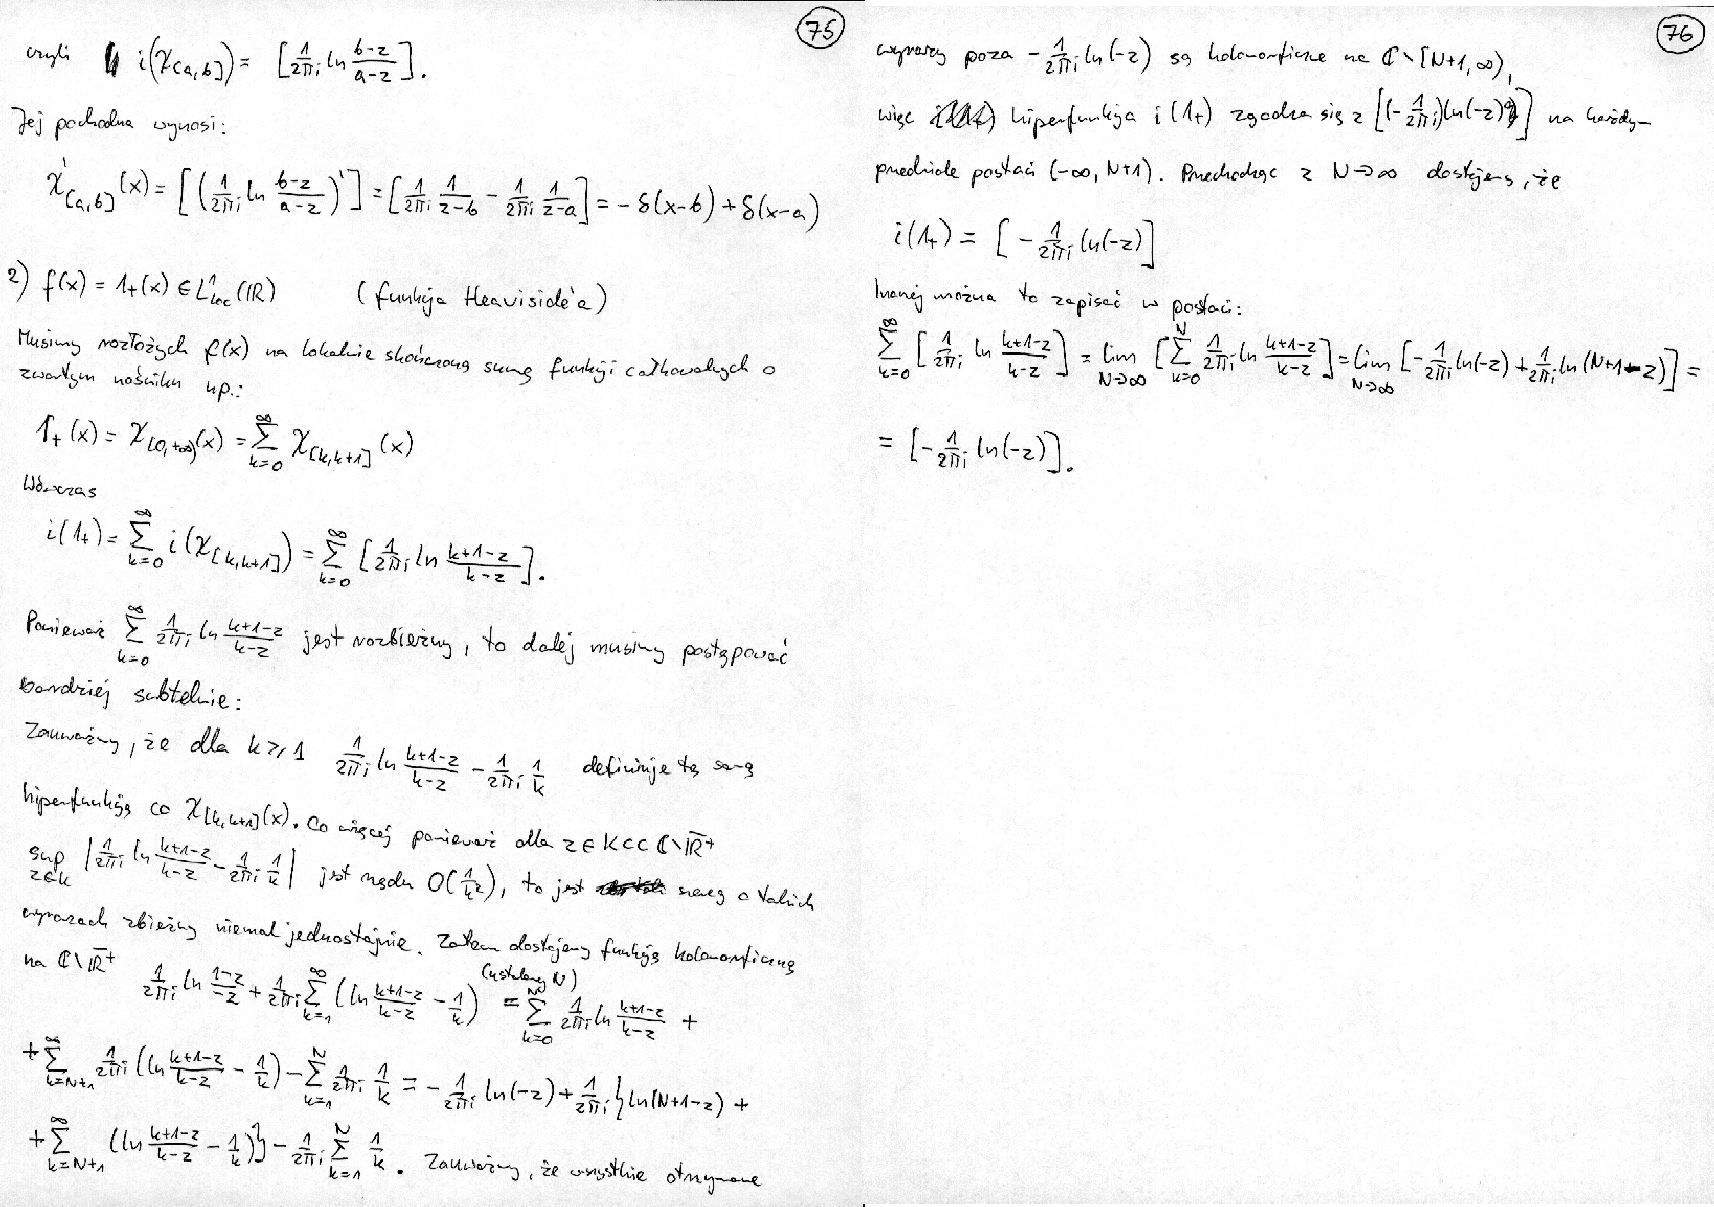 75
czyli i(χ[a,b]) = [1/2πi ln (b-z)/(a-z)].
Jej pochodna wynosi:
χ'[a,b](x) = [(1/2πi ln (b-z)/(a-z))'] = [1/2πi 1/(z-b) - 1/2πi 1/(z-a)] = -δ(x-b) + δ(x-a)
2) f(x) = 1₊(x) ∈ L¹loc(ℝ) (funkcja Heaviside'a)
Musimy rozłożyć f(x) na lokalnie skończoną sumę funkcji całkowalnych o
zwartym nośniku np.:
1₊(x) = χ[0,+∞)(x) = ∑_{k=0}^{∞} χ[k,k+1](x)
Wówczas
i(1₊) = ∑_{k=0}^{∞} i(χ[k,k+1]) = ∑_{k=0}^{∞} [1/2πi ln (k+1-z)/(k-z)].
Ponieważ ∑_{k=0}^{∞} 1/2πi ln (k+1-z)/(k-z) jest rozbieżny, to dalej musimy postępować
bardziej subtelnie:
Zauważmy, że dla k ≥ 1 1/2πi ln (k+1-z)/(k-z) - 1/2πi 1/k definiuje tę samą
hiperfunkcję co χ[k,k+1](x). Co więcej ponieważ dla z ∈ K ⊂⊂ ℂ\ℝ̄⁺
sup_{z∈K} |1/2πi ln (k+1-z)/(k-z) - 1/2πi 1/k| jest rzędu O(1/k²), to jest szereg o takich
wyrazach zbieżny niemal jednostajnie. Zatem dostajemy funkcję holomorficzną
na ℂ\ℝ̄⁺ 1/2πi ln (1-z)/(-z) + 1/2πi ∑_{k=1}^{∞} (ln (k+1-z)/(k-z) - 1/k) = (ustalmy N) ∑_{k=0}^{N} 1/2πi ln (k+1-z)/(k-z) +
+ ∑_{k=N+1}^{∞} 1/2πi (ln (k+1-z)/(k-z) - 1/k) - ∑_{k=1}^{N} 1/2πi 1/k = -1/2πi ln(-z) + 1/2πi {ln(N+1-z) +
+ ∑_{k=N+1}^{∞} (ln (k+1-z)/(k-z) - 1/k)} - 1/2πi ∑_{k=1}^{N} 1/k. Zauważmy, że wszystkie otrzymane
76
wyrazy poza -1/2πi ln(-z) są holomorficzne na ℂ\[N+1,∞),
więc hiperfunkcja i(1₊) zgadza się z [(-1/2πi) ln(-z)] na każdym
przedziale postaci (-∞, N+1). Przechodząc z N→∞ dostajemy, że
i(1₊) = [-1/2πi ln(-z)]
Inaczej można to zapisać w postaci:
∑_{k=0}^{∞} [1/2πi ln (k+1-z)/(k-z)] = lim_{N→∞} [∑_{k=0}^{N} 1/2πi ln (k+1-z)/(k-z)] = lim_{N→∞} [-1/2πi ln(-z) + 1/2πi ln(N+1-z)] =
= [-1/2πi ln(-z)].